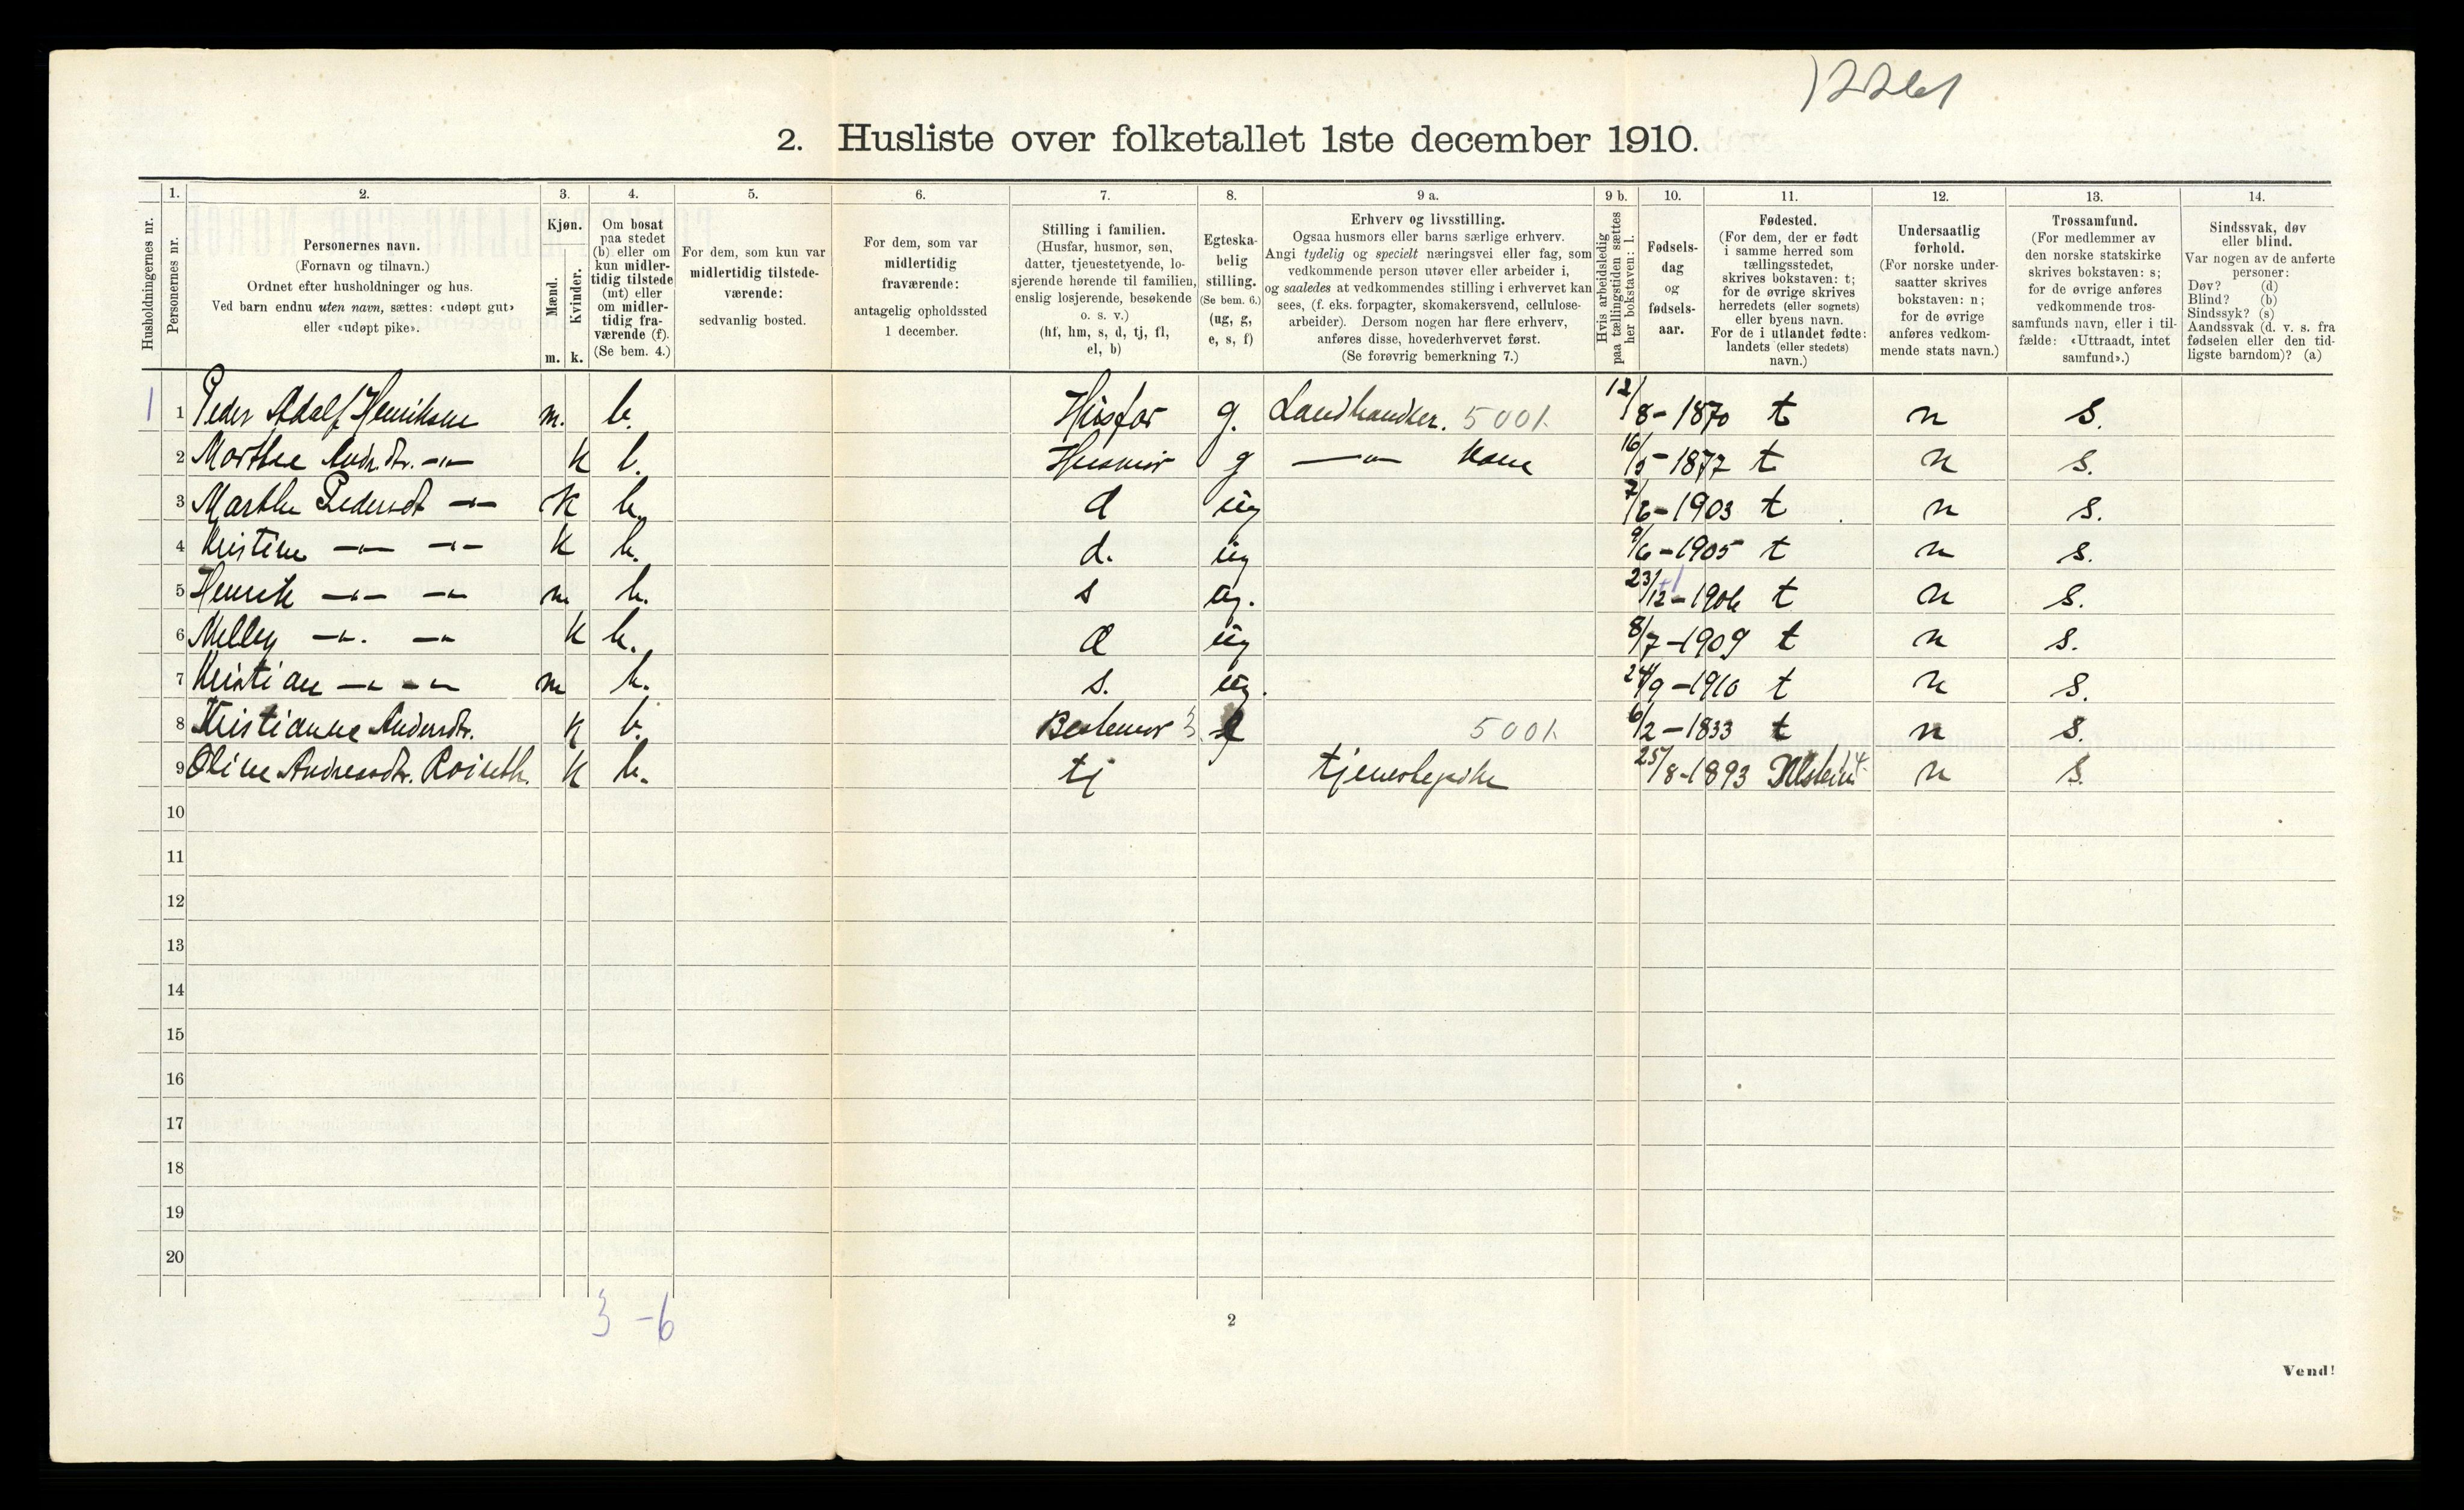 2. Husliste over folketallet 1ste december 1910.
1. 2. 3. 4. 5. 6. 7. 8. 9 a. 9 b. 10. 11. 12. 13. 14.
Husholdningernes nr.
Personernes nr.
Personernes navn.
(Fornavn og tilnavn.)
Ordnet efter husholdninger og hus.
Ved barn endnu uten navn, sættes: «udøpt gut»
eller «udøpt pike».
Kjøn.
Mænd.
Kvinder.
m. k.
Om bosat
paa stedet
(b) eller om
kun midler-
tidig tilstede
(mt) eller
om midler-
tidig fra-
værende (f).
(Se bem. 4.)
For dem, som kun var
midlertidig tilstede-
værende:
sedvanlig bosted.
For dem, som var
midlertidig
fraværende:
antagelig opholdssted
1 december.
Stilling i familien.
(Husfar, husmor, søn,
datter, tjenestetyende, lo-
sjerende hørende til familien,
enslig losjerende, besøkende
o. s. v.)
(hf, hm, s, d, tj, fl,
el, b)
Egteska-
belig
stilling.
(Se bem. 6.)
(ug, g,
e, s, f)
Erhverv og livsstilling.
Ogsaa husmors eller barns særlige erhverv.
Angi tydelig og specielt næringsvei eller fag, som
vedkommende person utøver eller arbeider i,
og saaledes at vedkommendes stilling i erhvervet kan
sees, (f. eks. forpagter, skomakersvend, cellulose-
arbeider). Dersom nogen har flere erhverv,
anføres disse, hovederhvervet først.
(Se forøvrig bemerkning 7.)
Hvis arbeidsledig
paa tællingstiden sættes
her bokstaven: l.
Fødsels-
dag
og
fødsels-
aar.
Fødested.
(For dem, der er født
i samme herred som
tællingsstedet,
skrives bokstaven: t;
for de øvrige skrives
herredets (eller sognets)
eller byens navn.
For de i utlandet fødte:
landets (eller stedets)
navn.)
Undersaatlig
forhold.
(For norske under-
saatter skrives
bokstaven: n;
for de øvrige
anføres vedkom-
mende stats navn.)
Trossamfund.
(For medlemmer av
den norske statskirke
skrives bokstaven: s;
for de øvrige anføres
vedkommende tros-
samfunds navn, eller i til-
fælde: «Uttraadt, intet
samfund».)
Sindssvak, døv
eller blind.
Var nogen av de anførte
personer:
Døv? (d)
Blind? (b)
Sindssyk? (s)
Aandssvak (d. v. s. fra
fødselen eller den tid-
ligste barndom)? (a)
1 1 Peder Adolf Henriksen m. b. Husfar g. Landhandler. 5001. 12/8-1870 t n s.
2 Marthe Andr.dtr. -"- k b. Husmor g -"- kone 16/5-1877 t n s.
3 Marthe Pedersdt -"- k b. d ug 7/6-1903 t n s.
4 Kristine -"- -"- k b. d. ug 9/6-1905 t n s.
5 Henrik -"- -"- m b. s ug. 23/12-1906 t n s.
6 Melley -"- -"- k b. d ug 8/7-1909 t n s.
7 Kristian -"- -"- m b. s. ug. 24/9-1910 t n s.
8 Kristianne Andersdtr. k b. Bestemor 3. e 5001. 6/2-1833 t n s.
9 Oline Andreasdtr. k b. tj tjenestepike 25/8-1893 n s.
10
11
12
13
14
15
16
17
18
19
20
3-6
2
Vend!